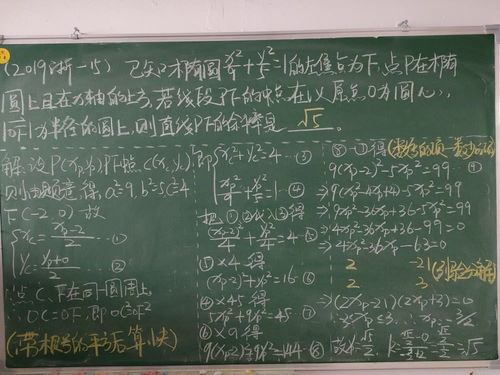 (2019浙-15) 已知椭圆x²/9+y²/5=1的左焦点为F,点P在椭
圆上且在x轴的上方,若线段PF的中点在以原点O为圆心,
|OF|为半径的圆上,则直线PF的斜率是 √15 。
解:设P(xp,yp) PF中点C(xc,yc)
则由题意,得a²=9,b²=5,c²=4
F(-2,0) 故
xc=(xp-2)/2 ①
yc=(yp+0)/2 ②
∵点C、F在同一圆周上
∴OC=OF,即OC²=OF²
(带根号的平方后算小失)
即 xc²+yc²=4 ③
xp²/9+yp²/5=1 ④
把①②代入③得
(xp-2)²/4+yp²/4=4 ⑤
⑤×4得
(xp-2)²+yp²=16 ⑥
④×45得
5xp²+9yp²=45 ⑦
⑥×9得
9(xp-2)²+9yp²=144 ⑧
⑧-⑦得
9(xp-2)²-5xp²=99 ⑨
⇒9(xp²-4xp+4)-5xp²=99
⇒9xp²-36xp+36-5xp²=99
⇒4xp²-36xp+36-99=0
⇒4xp²-36xp-63=0
2 -21
2 3
⇒(2xp-21)(2xp+3)=0